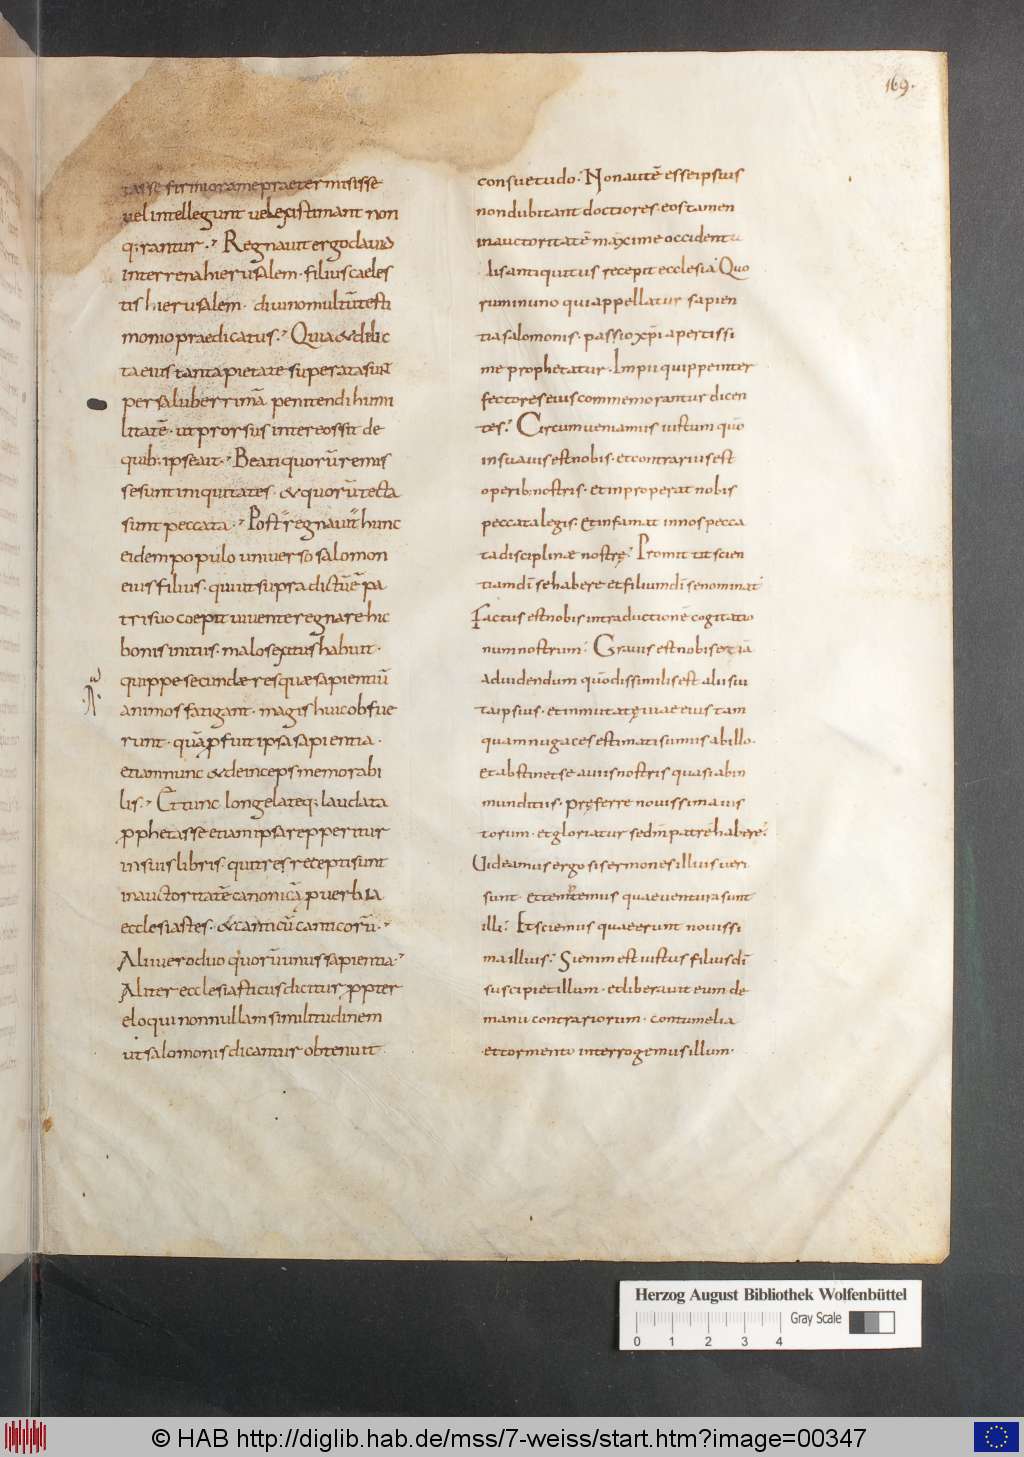 169.
tasse firmiorame praetermisisse
uel intellegunt uel existimant non
q:rantur. Regnauit ergo dauid
in terrena hierusalem. filius caeles
tis hierusalem. diuino multū testi
monio praedicatus. Quia & delic
ta eius tanta pietate superata sun̄
per saluberrimā penitendi humi
litatē. ut prorsus inter eos sit de
quib: ipse ait. Beati quorū remis
se sunt iniquitates. & quorū tecta
sunt peccata. Post regnauit hunc
eidem populo uniuerso salomon
eius filius. qui ut supra dictū ē pa
tri suo coepit uiuente regnare hic
bonis initus. malos exitus habuit.
quippe secundæ res quæ sapientiū
animos fatigant. magis huic obfue
runt. quā pfuit ipsa sapientia.
etiam nunc & deinceps memorabi
lis. Et tunc longe lateq; laudata
pphetasse etiam ipsa repperitur
in suis libris. qui tres recepti sunt
in auctoritatē canonicā puerbia
ecclesiastes. & canticū canticorū.
Alii uero duo quorū unus sapientia.
Aliter ecclesiasticus dicitur ppter
eloquii nonnullam similitudinem
ut salomonis dicantur obtenuit
consuetudo. Non autē esse ipsius
non dubitant doctiores eos tamen
in auctoritatē maxime occidentu
lis antiquitus recepit ecclesia. Quo
rum in uno qui appellatur sapien
tia salomonis. passio xp̄i apertissi
me prophetatur. Impii quippe inter
fectores eius commemorantur dicen
tes. Circumueniamus iustum quō
insuauis est nobis. et contrarius est
operib: nostris. et inproperat nobis
peccata legis. Et infamat in nos pecca
ta disciplinæ nostrę. Promittit scien
tiam dī se habere et filium dī se nominat
Factus est nobis in traductionē cogitatio
num nostrum. Grauis est nobis etiā
ad uidendum. quō dissimilis est aliis ui
ta ipsius. et inmutatę uiae eius tam
quam nugaces estimati sumus ab illo.
Et abstinet se a uiis nostris quasi ab in
munditiis. pręferre nouissima ius
torum. et gloriatur se dm̄ patrē habere.
Uideamus ergo si sermones illius ueri
sunt. et temptemus quae uentura sunt
illi. Et sciemus quae erunt nouissi
ma illius. Si enim est iustus filius dī
suscipiet illum. et liberauit eum de
manu contrariorum. Contumelia
et tormento interrogemus illum.
Herzog August Bibliothek Wolfenbüttel
Gray Scale
0 1 2 3 4
© HAB http://diglib.hab.de/mss/7-weiss/start.htm?image=00347